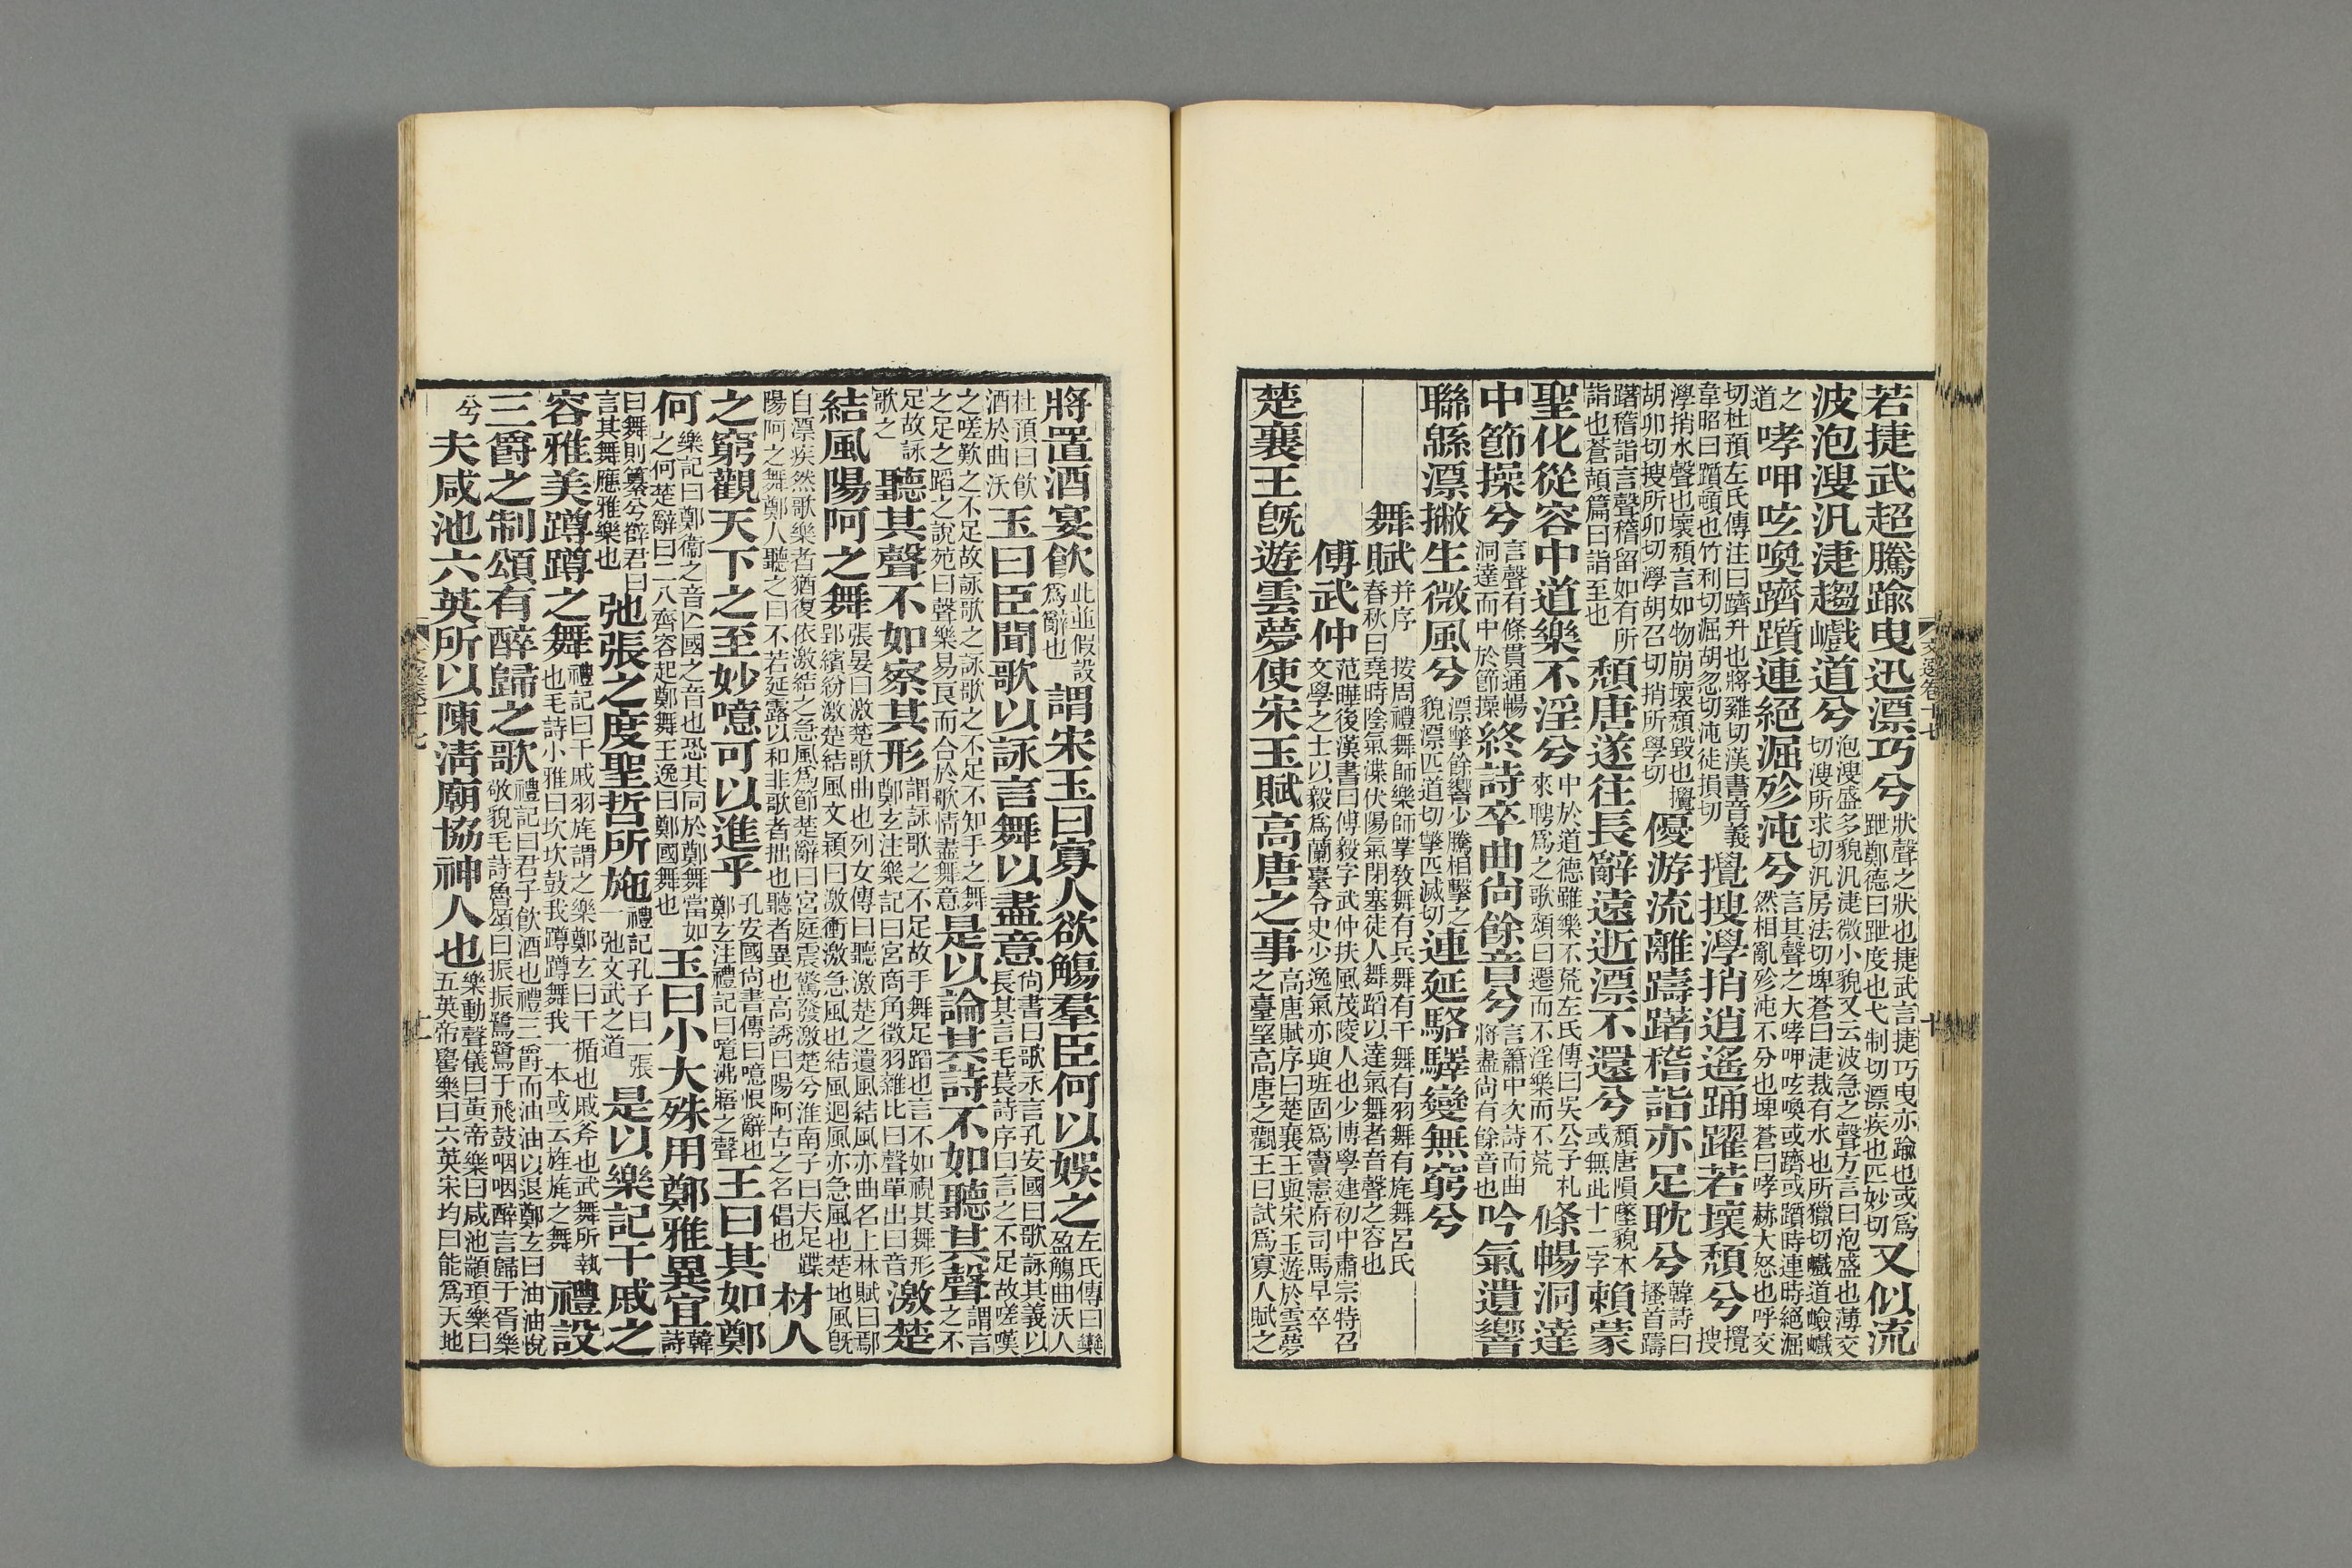 若捷武超騰踰曳迅漂巧兮狀聲之狀也捷武言捷巧曳亦踰也或爲跇鄭德曰跇度也弋制切漂疾也匹妙切又似流
波泡溲汎㴙趨巇道兮泡溲盛多貌汎㴙微小貌又云波急之聲方言曰泡盛也薄交切溲所求切汎房法切埤蒼曰㴙裁有水也所獵切巇道嶮巇
之道哮呷呟喚躋躓連絕淈殄沌兮言其聲之大哮呷呟喚或躋或躓時連時絕淈然相亂殄沌不分也埤蒼曰哮赫大怒也呼交
切杜預左氏傳注曰躋升也將雞切漢書音義韋昭曰躓頓也竹利切淈胡忽切沌徒損切攪搜㶅捎逍遙踊躍若壞頹兮攪搜
㶅捎水聲也壞頹言如物崩壞頹毀也攪胡卯切搜所卯切㶅胡召切捎所學切優游流離躊躇稽詣亦足耽兮韓詩曰搔首躊
躇稽詣言聲稽留如有所詣也蒼頡篇曰詣至也頹唐遂往長辭遠逝漂不還兮頹唐隕墜貌本或無此十二字賴蒙
聖化從容中道樂不淫兮中於道德雖樂不荒左氏傳曰吳公子札來聘爲之歌頌曰遷而不淫樂而不荒條暢洞達
中節操兮言聲有條貫通暢洞達而中於節操終詩卒曲尚餘音兮言簫中次詩而曲將盡尚有餘音也吟氣遺響
聯緜漂撇生微風兮漂擊餘響少騰相擊之貌漂匹道切擊匹滅切連延駱驛變無窮兮
舞賦并序按周禮舞師樂師掌教舞有兵舞有干舞有羽舞有旄舞呂氏春秋曰堯時陰氣滯伏陽氣閉塞徒人舞蹈以達氣舞者音聲之容也
傅武仲范曄後漢書曰傅毅字武仲扶風茂陵人也少博學建初中肅宗特召文學之士以毅爲蘭臺令史少逸氣亦與班固爲竇憲府司馬早卒
楚襄王旣遊雲夢使宋玉賦高唐之事高唐賦序曰楚襄王與宋玉遊於雲夢之臺望高唐之觀王曰試爲寡人賦之
文選卷十七
十
將置酒宴飲此並假設爲辭也謂宋玉曰寡人欲觴羣臣何以娛之左氏傳曰欒盈觴曲沃人
杜預曰飲酒於曲沃玉曰臣聞歌以詠言舞以盡意尚書曰歌永言孔安國曰歌詠其義以長其言毛萇詩序曰言之不足故嗟嘆
之嗟歎之不足故詠歌之詠歌之不足不知手之舞之足之蹈之說苑曰聲樂易良而合於歌情盡舞意是以論其詩不如聽其聲謂言之不
足故詠歌之聽其聲不如察其形謂詠歌之不足故手舞足蹈也言不如視其舞形鄭玄注樂記曰宮商角徵羽雜比曰聲單出曰音激楚
結風陽阿之舞張晏曰激楚歌曲也列女傳曰聽激楚之遺風結風亦曲名上林賦曰鄢郢繽紛激楚結風文穎曰激衝激急風也結風迴風亦急風也楚地風旣
自漂疾然歌樂者猶復依激結之急風爲節楚辭曰宮庭震驚發激楚兮淮南子曰夫足蹀陽阿之舞鄭人聽之曰不若延露以和非歌者拙也聽者異也高誘曰陽阿古之名倡也材人
之窮觀天下之至妙噫可以進乎孔安國尚書傳曰噫恨辭也鄭玄注禮記曰噫沸寤之聲王曰其如鄭
何樂記曰鄭衞之音亡國之音也恐其同於鄭舞當如之何楚辭曰二八齊容起鄭舞王逸曰鄭國舞也玉曰小大殊用鄭雅異宜韓詩
曰舞則纂兮薛君曰言其舞應雅樂也弛張之度聖哲所施禮記孔子曰一張一弛文武之道是以樂記干戚之
容雅美蹲蹲之舞禮記曰干戚羽旄謂之樂鄭玄曰干楯也戚斧也武舞所執也毛詩小雅曰坎坎鼓我蹲蹲舞我一本或云旌旄之舞禮設
三爵之制頌有醉歸之歌禮記曰君子飲酒也禮三爵而油油以退鄭玄曰油油悅敬貌毛詩魯頌曰振振鷺鷺于飛鼓咽咽醉言歸于胥樂
兮夫咸池六英所以陳清廟協神人也樂動聲儀曰黃帝樂曰咸池顓頊樂曰五英帝嚳樂曰六英宋均曰能爲天地